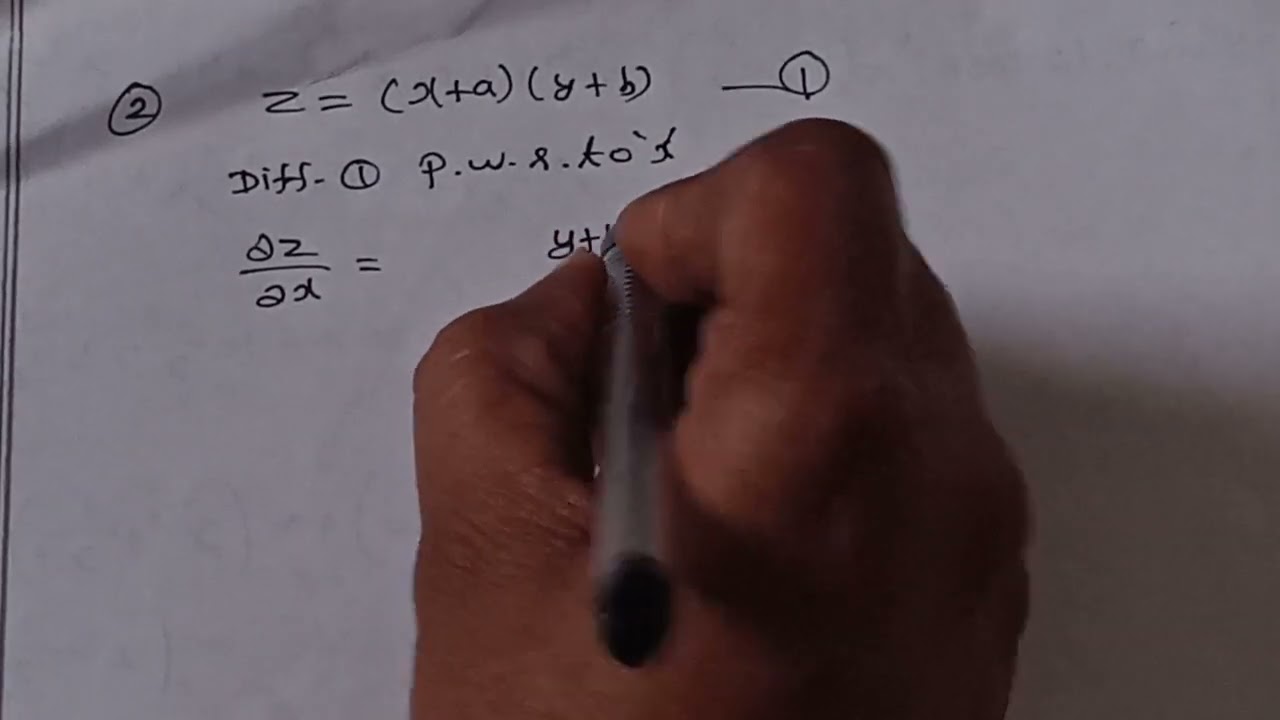 ② z = (x+a)(y+b) — ①
Diff. ① p.w.r.to 'x
∂z/∂x = y+